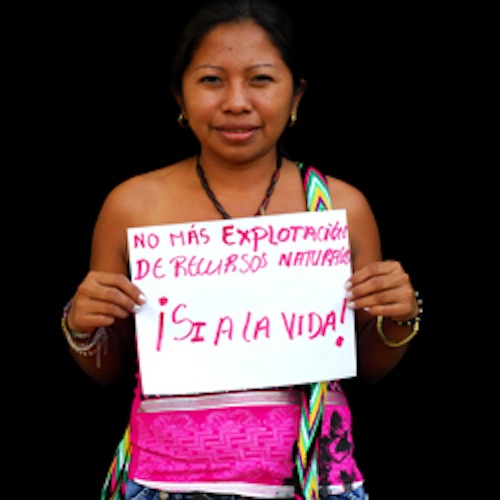 NO MÁS EXPLOTACIÓN
DE RECURSOS NATURALES
¡SI A LA VIDA!